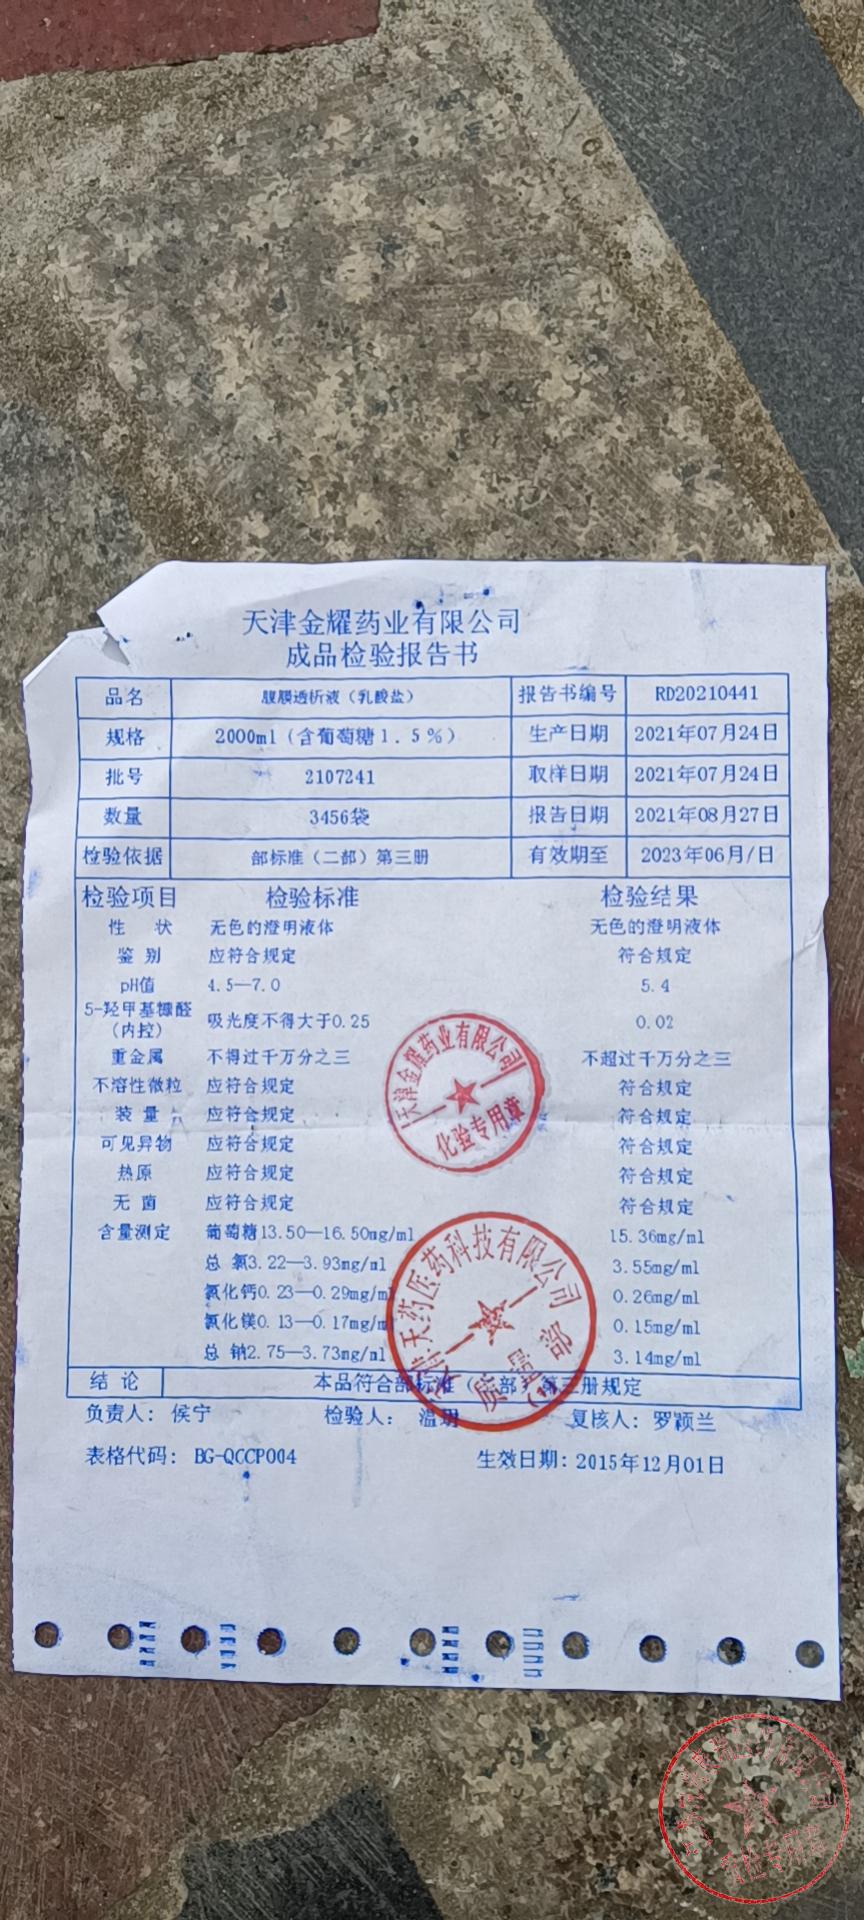 天津金耀药业有限公司
成品检验报告书
品名 腹膜透析液（乳酸盐） 报告书编号 RD20210441
规格 2000ml（含葡萄糖1.5%） 生产日期 2021年07月24日
批号 2107241 取样日期 2021年07月24日
数量 3456袋 报告日期 2021年08月27日
检验依据 部标准（二部）第三册 有效期至 2023年06月/日
检验项目 检验标准 检验结果
性 状 无色的澄明液体 无色的澄明液体
鉴 别 应符合规定 符合规定
pH值 4.5—7.0 5.4
5-羟甲基糠醛（内控） 吸光度不得大于0.25 0.02
重金属 不得过千万分之三 不超过千万分之三
不溶性微粒 应符合规定 符合规定
装 量 应符合规定 符合规定
可见异物 应符合规定 符合规定
热原 应符合规定 符合规定
无 菌 应符合规定 符合规定
含量测定 葡萄糖13.50—16.50mg/ml 15.36mg/ml
总 氯3.22—3.93mg/ml 3.55mg/ml
氯化钙0.23—0.29mg/ml 0.26mg/ml
氯化镁0.13—0.17mg/ml 0.15mg/ml
总 钠2.75—3.73mg/ml 3.14mg/ml
结 论 本品符合部标准（二部）第三册规定
负责人：侯宁 检验人：温玥 复核人：罗颖兰
表格代码：BG-QCCP004 生效日期：2015年12月01日
天津金耀药业有限公司
化验专用章
天药医药科技有限公司
质量部
(1)
质检专用章